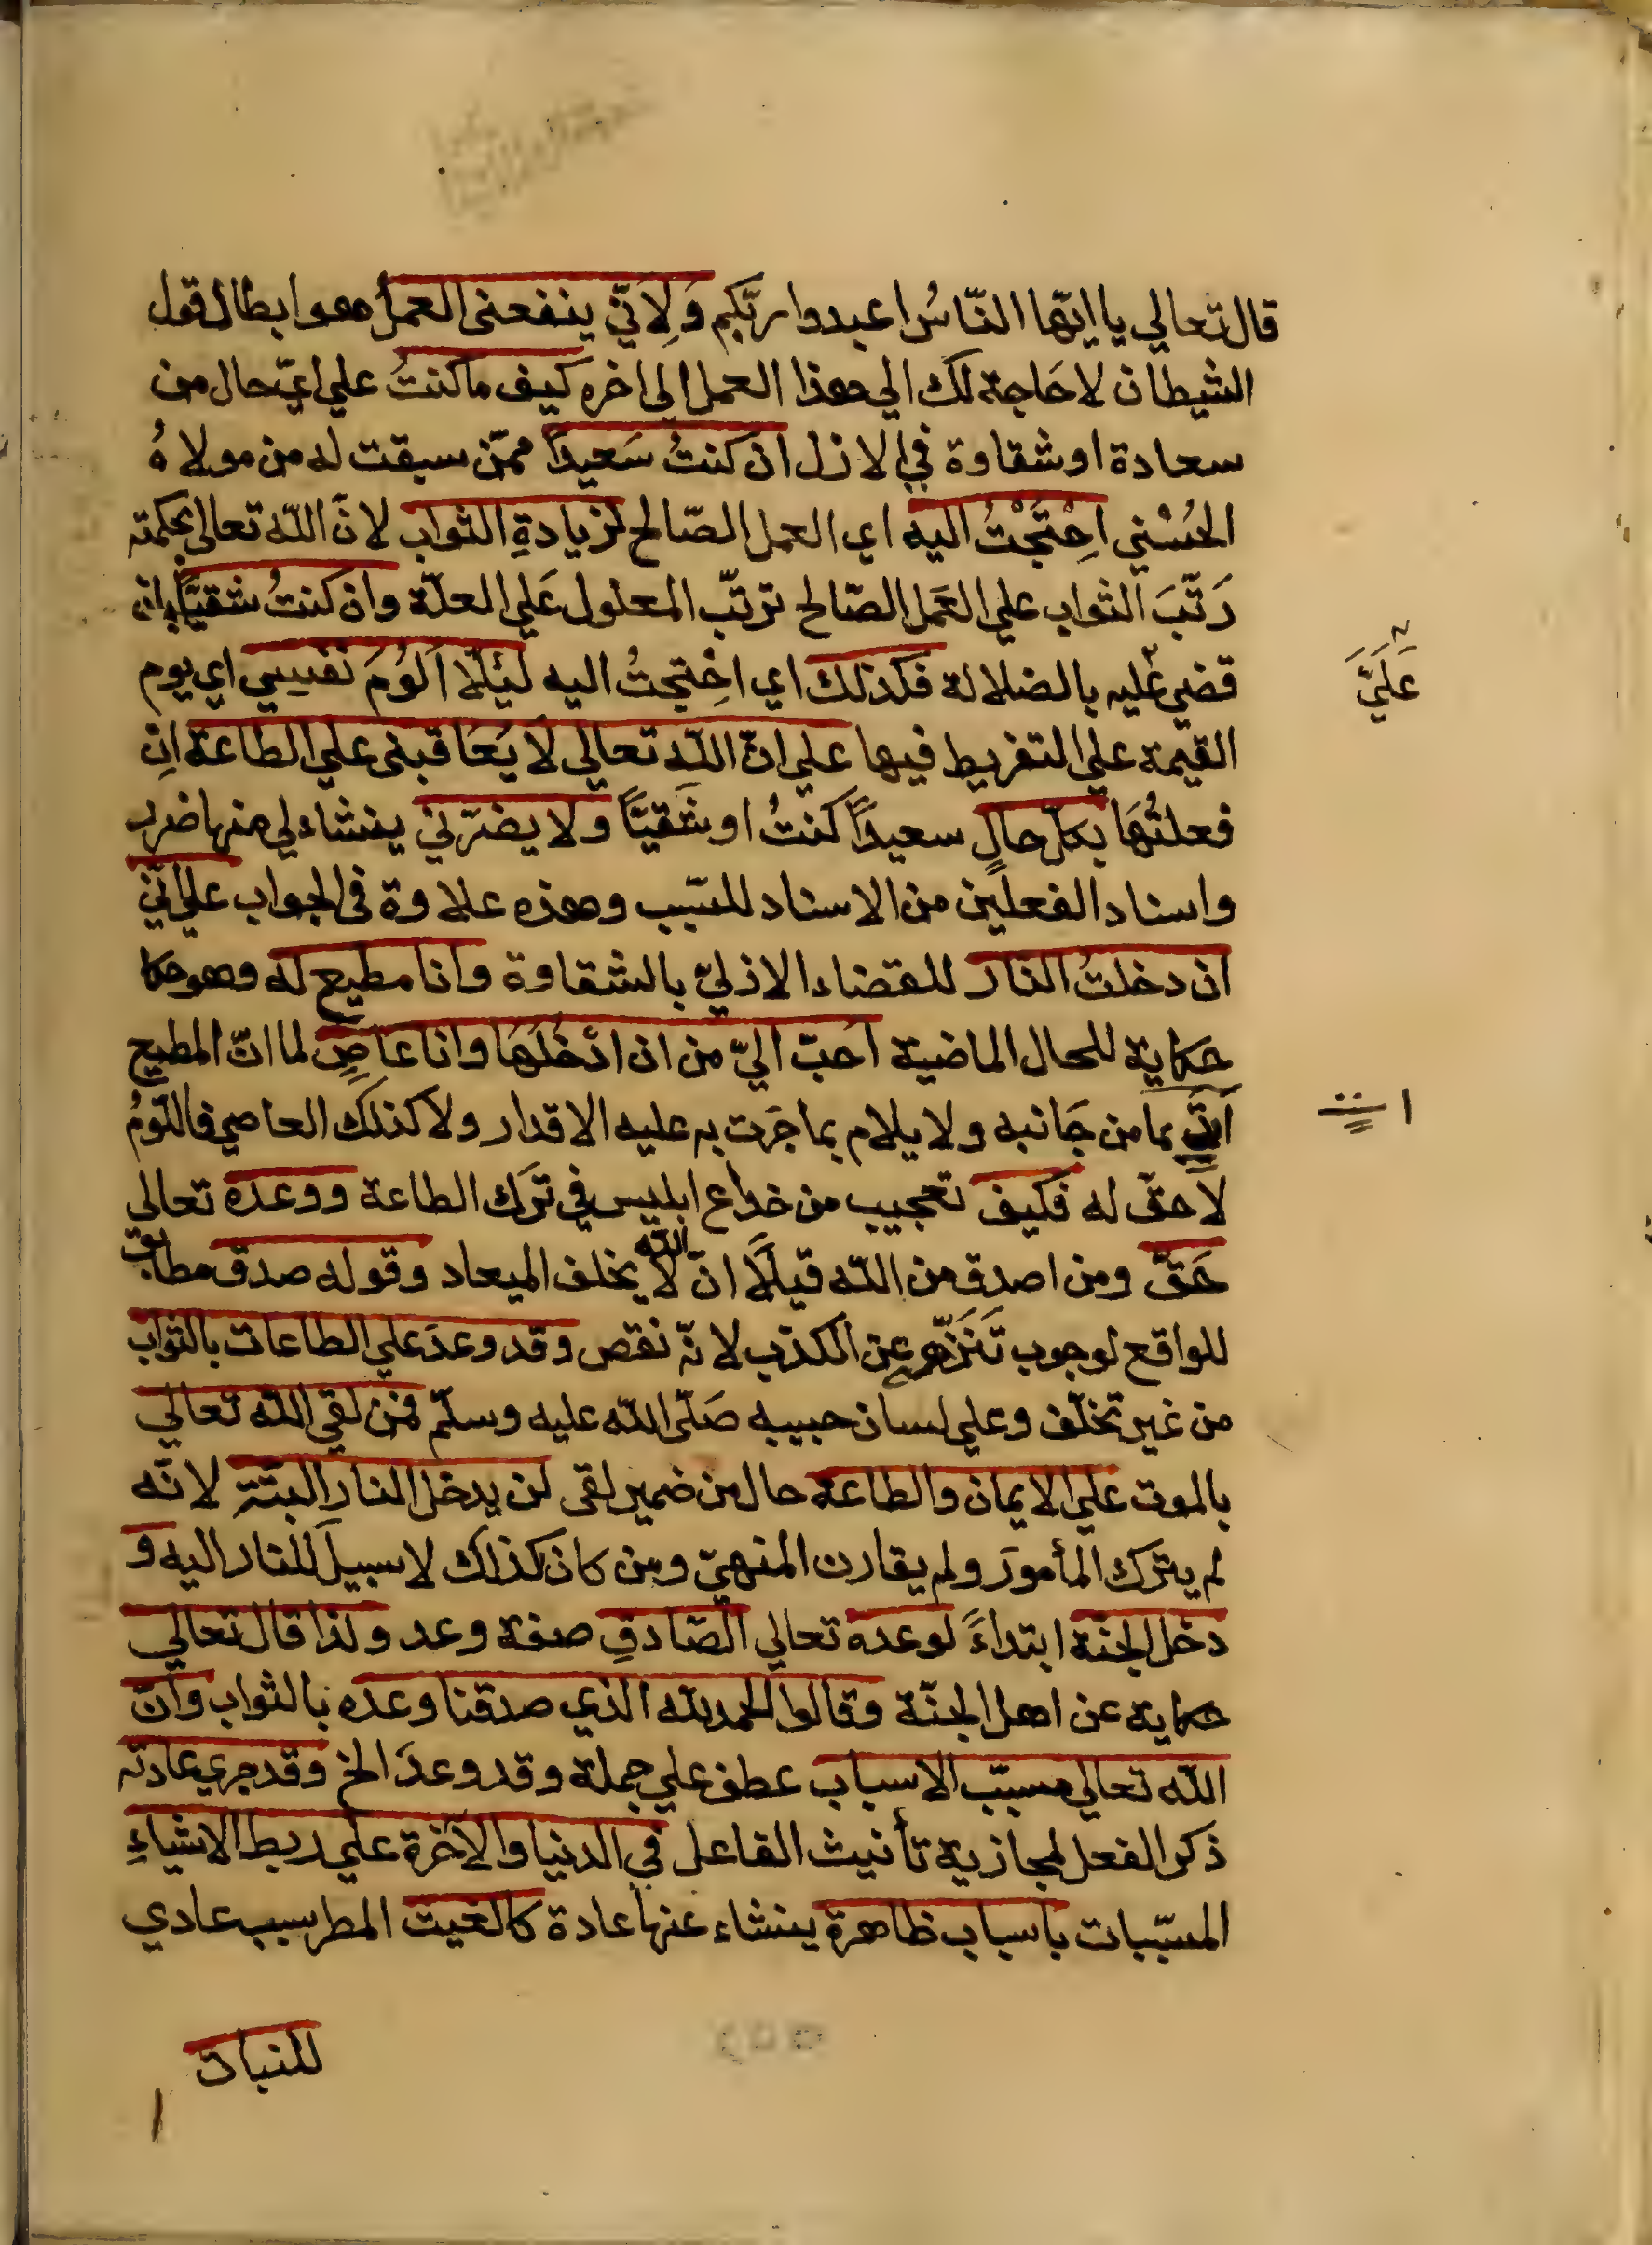 قال تعالي يا ايّها النّاسُ اعبدوا ربّكم وَلِاَنّي ينفعنى العملُ هو ابطال لقول
الشيطان لا حَاجة لك الي هذا العمل الى اخره كيف ما كنتُ علي ايّ حال من
سعادة او شقاوة في الازل ان كنتُ سَعيداً ممّن سبقت له من مولاهُ
الحُسْني احْتَجْتُ اليه اي العمل الصّالح لزيادةِ الثواب لانّ اللّه تعالي بحكمته
رَتّبَ الثواب علي العَمل الصّالح ترتّب المعلول عَلي العلّة وان كنتُ شقيّاً بان
قضي عليه بالضلالة فكذلك اي احْتجتُ اليه لئِلّا اَلُومَ نفسِي اي يوم
عَلَيَّ
القيمة علي التفريط فيها علي انّ اللّه تعالي لا يعَاقبنى علي الطاعة انِ
فعلتُهَا بكلّ حالٍ سعيداً كنتُ او شَقيّاً ولا يضرّني ينشاء لي منها ضرر
واسناد الفعلين من الاسناد للسّبب وهذه علاوة فى الجواب علي انّي
ان دخلتُ النار للقضاء الازليّ بالشقاوة وانا مطيع له وهو حكا
حكاية للحال الماضية احَبّ اليّ من ان ادْخُلَهَا وانا عاصٍ لما انّ المطيع
اَتَي بما من جَانبه ولا يلام بما جَرَت به عليه الاقدار ولا كذلك العاصي فاللّومُ
لاحقٌ له فكيف تعجيب من خداع ابليس في ترَك الطاعة ووعده تعالي
حَقٌّ ومن اصدق من اللّه قيلًا انّ اللّه لا يخلف الميعاد وقوله صدق مطابق
للواقع لوجوب تَنَزّهه عن الكذب لانّه نقص وقد وعدَ علي الطاعات بالثواب
من غير تخلّف وعلي لسان حبيبه صَلّى اللّه عليه وسلّم فمن لقي اللّه تعالي
بالموت علي الايمان والطاعة حال من ضمير لقى لن يدخل النار البتّة لانّه
لم يترَك المأمورَ ولم يقارن المنهيّ ومن كان كذلك لا سبيلَ للنار اليه و
دخل الجنّة ابتداءً لوعده تعالي الصّادقِ صفة وعد ولذا قال تعالي
حكاية عن اهل الجنّة وقالوا الحمد للّه الذي صدقنا وعده بالثواب وانّ
اللّه تعالي مسبّب الاسباب عطف علي جملة وقد وعدَ الخ وقد جري عادته
ذكر الفعل لمجازية تأنيث الفاعل في الدنيا والآخرة علي ربط الاشياءِ
المسبّبات باسباب ظاهرة ينشاء عنها عادة كالغيث المطر سبب عادي
للنبات